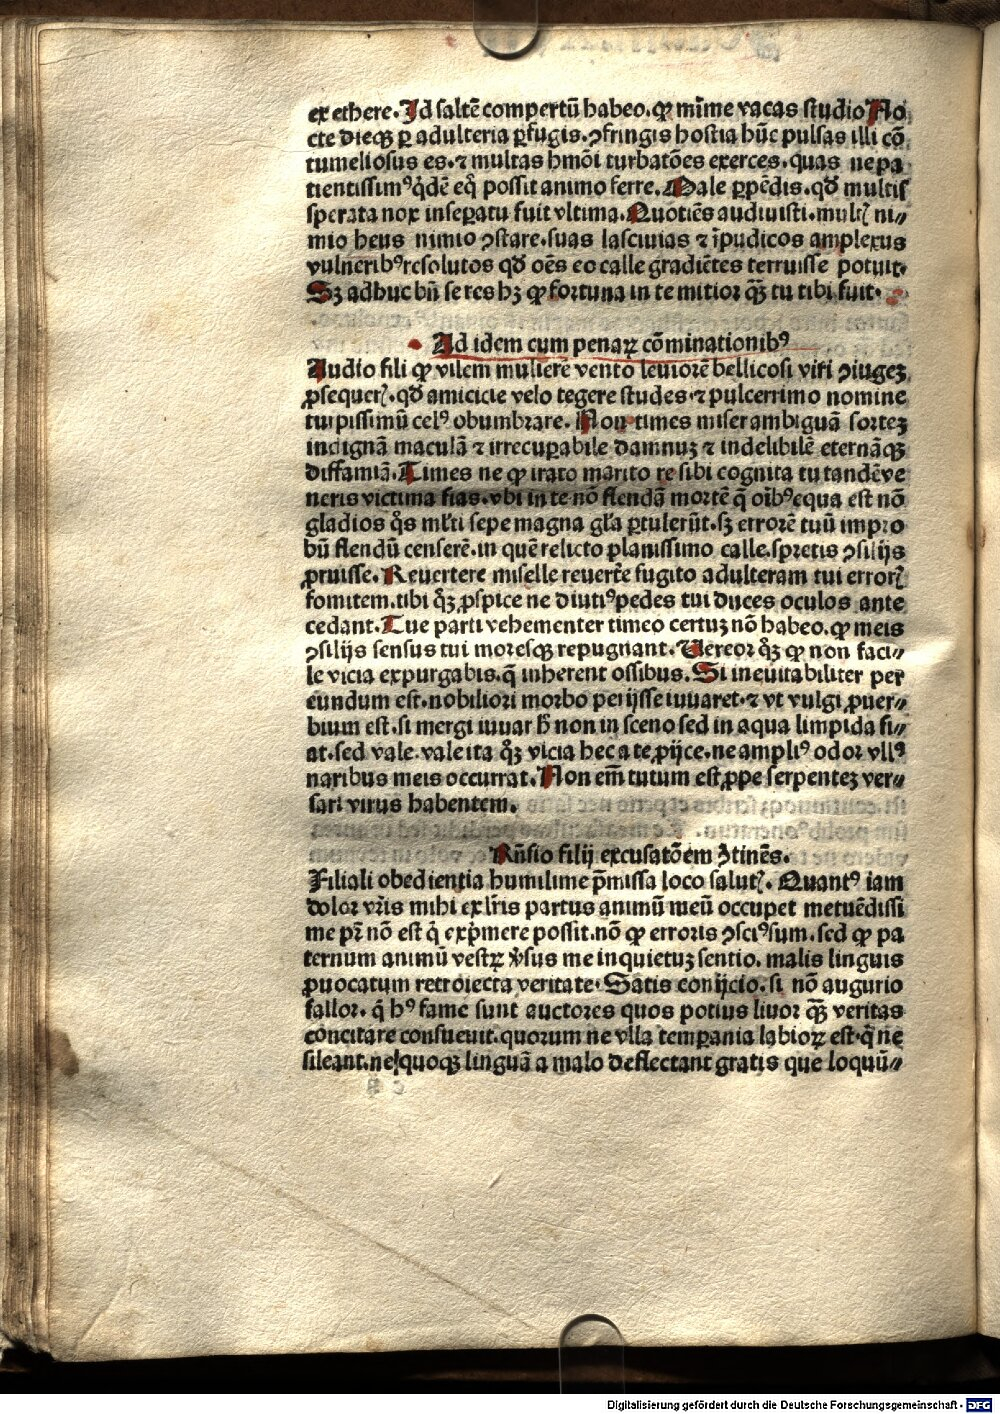 ex ethere. Id saltē compertū habeo. ꝙ mīme vacas studio No
cte dieqꝫ ꝑ adulteria ꝑfugis. ꝯfringis hostia hūc pulsas illi cō
tumeliosus es. ⁊ multas hmōi turbatōes exerces. quas ne pa
tientissimꝰ qͥdē eqͦ possit animo ferre. Male ꝑpēdis. qđ multis
sperata nox insperatu fuit vltima. Quotiēs audiuisti. multꝭ ni⸗
mio heus nimio ꝯstare. suas lasciuias ⁊ īpudicos amplexus
vulneribꝰ resolutos qđ oēs eo calle gradiētes terruisse potuit.
Sꝫ adhuc bn̄ se res hꝫ ꝙ fortuna in te mitior qͣꝫ tu tibi fuit.
Ad idem cum penaꝝ cōminationibꝰ
Audio fili ꝙ vilem mulierē vento leuiorē bellicosi viri ꝯiugeꝫ
ꝓsequerꝭ. qđ amicicie velo tegere studes. ⁊ pulcerrimo nomine
turpissimū celꝰ obumbrare. Non times miser ambiguā sorteꝫ
indignā maculā ⁊ irrecuꝑabile damnuꝫ ⁊ indelibilē eternāqꝫ
diffamiā. Times ne ꝙ irato marito re sibi cognita tu tandē ve
neris victima fias. vbi in te nō flendā mortē q̄ oībꝰ equa est nō
gladios qͦs ml̄ti sepe magna gl̄a ꝑtulerūt. sꝫ errorē tuū impro
bū flendū censerē. in quē relicto planissimo calle. spretis ꝯsilijs
ꝓruisse. Reuertere miselle reuert̄e fugito adulteram tui errorꝭ
fomitem. tibi qͣꝫ ꝓspice ne diutiꝰ pedes tui duces oculos ante
cedant. Tue parti vehementer timeo certuꝫ nō habeo. ꝙ meis
ꝯsilijs sensus tui moresqꝫ repugnant. Uereor qͣꝫ ꝙ non faci⸗
le vicia expurgabis. q̄ inherent ossibus. Si ineuitabiliter per
eundum est. nobiliori morbo perijsse iuuaret. ⁊ vt vulgi ꝓuer⸗
bium est. si mergi iuuar h̄ non in sceno sed in aqua limpida fi⸗
at. sed vale. vale ita qͣꝫ vicia hec a te ꝓijce. ne ampliꝰ odor vllꝰ
naribus meis occurrat. Non em̄ tutum est ꝓpe serpenteꝫ ver⸗
sari virus habentem.
Rn̄sio filij excusatōem ꝯtinēs.
Filiali obedientia humilime p̄missa loco salutꝭ. Quantꝰ iam
dolor vr̄is mihi ex lr̄is partus animū meū occupet metuēdissi
me pr̄ nō est qͥ exp̄mere possit. nō ꝙ erroris ꝯsciꝰ sum. sed ꝙ pa
ternum animū vestꝝ v̄sus me inquietuꝫ sentio. malis linguis
ꝓuocatum retroiecta veritate. Satis conijcio. si nō augurio
fallor. qͥ hꝰ fame sunt auctores quos potius liuor qͣꝫ veritas
concitare consueuit. quorum ne vlla temꝑania labioꝝ est. qͥ ne
sileant. ne quoqꝫ linguā a malo deflectant gratis que loquū⸗
Digitalisierung gefördert durch die Deutsche Forschungsgemeinschaft - DFG